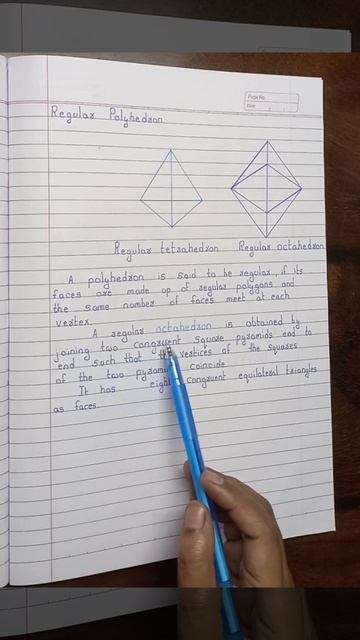 Page No.
Date
Regular Polyhedron
Regular tetrahedron Regular octahedron
A polyhedron is said to be regular, if its
faces are made up of regular polygons and
the same number of faces meet at each
vertex.
A regular octahedron is obtained by
joining two congruent square pyramids end to
end such that the vertices of the squares
of the two pyramids coincide
It has eight congruent equilateral triangles
as faces